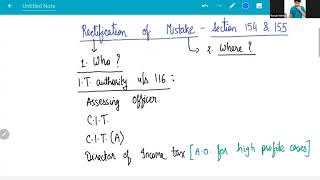 Untitled Note
Rectification of Mistake - Section 154 & 155
1. Who ?
2. Where ?
I.T. authority u/s 116 :
Assessing officer
C.I.T.
C.I.T. (A)
Director of Income tax [A.O. for high profile cases]